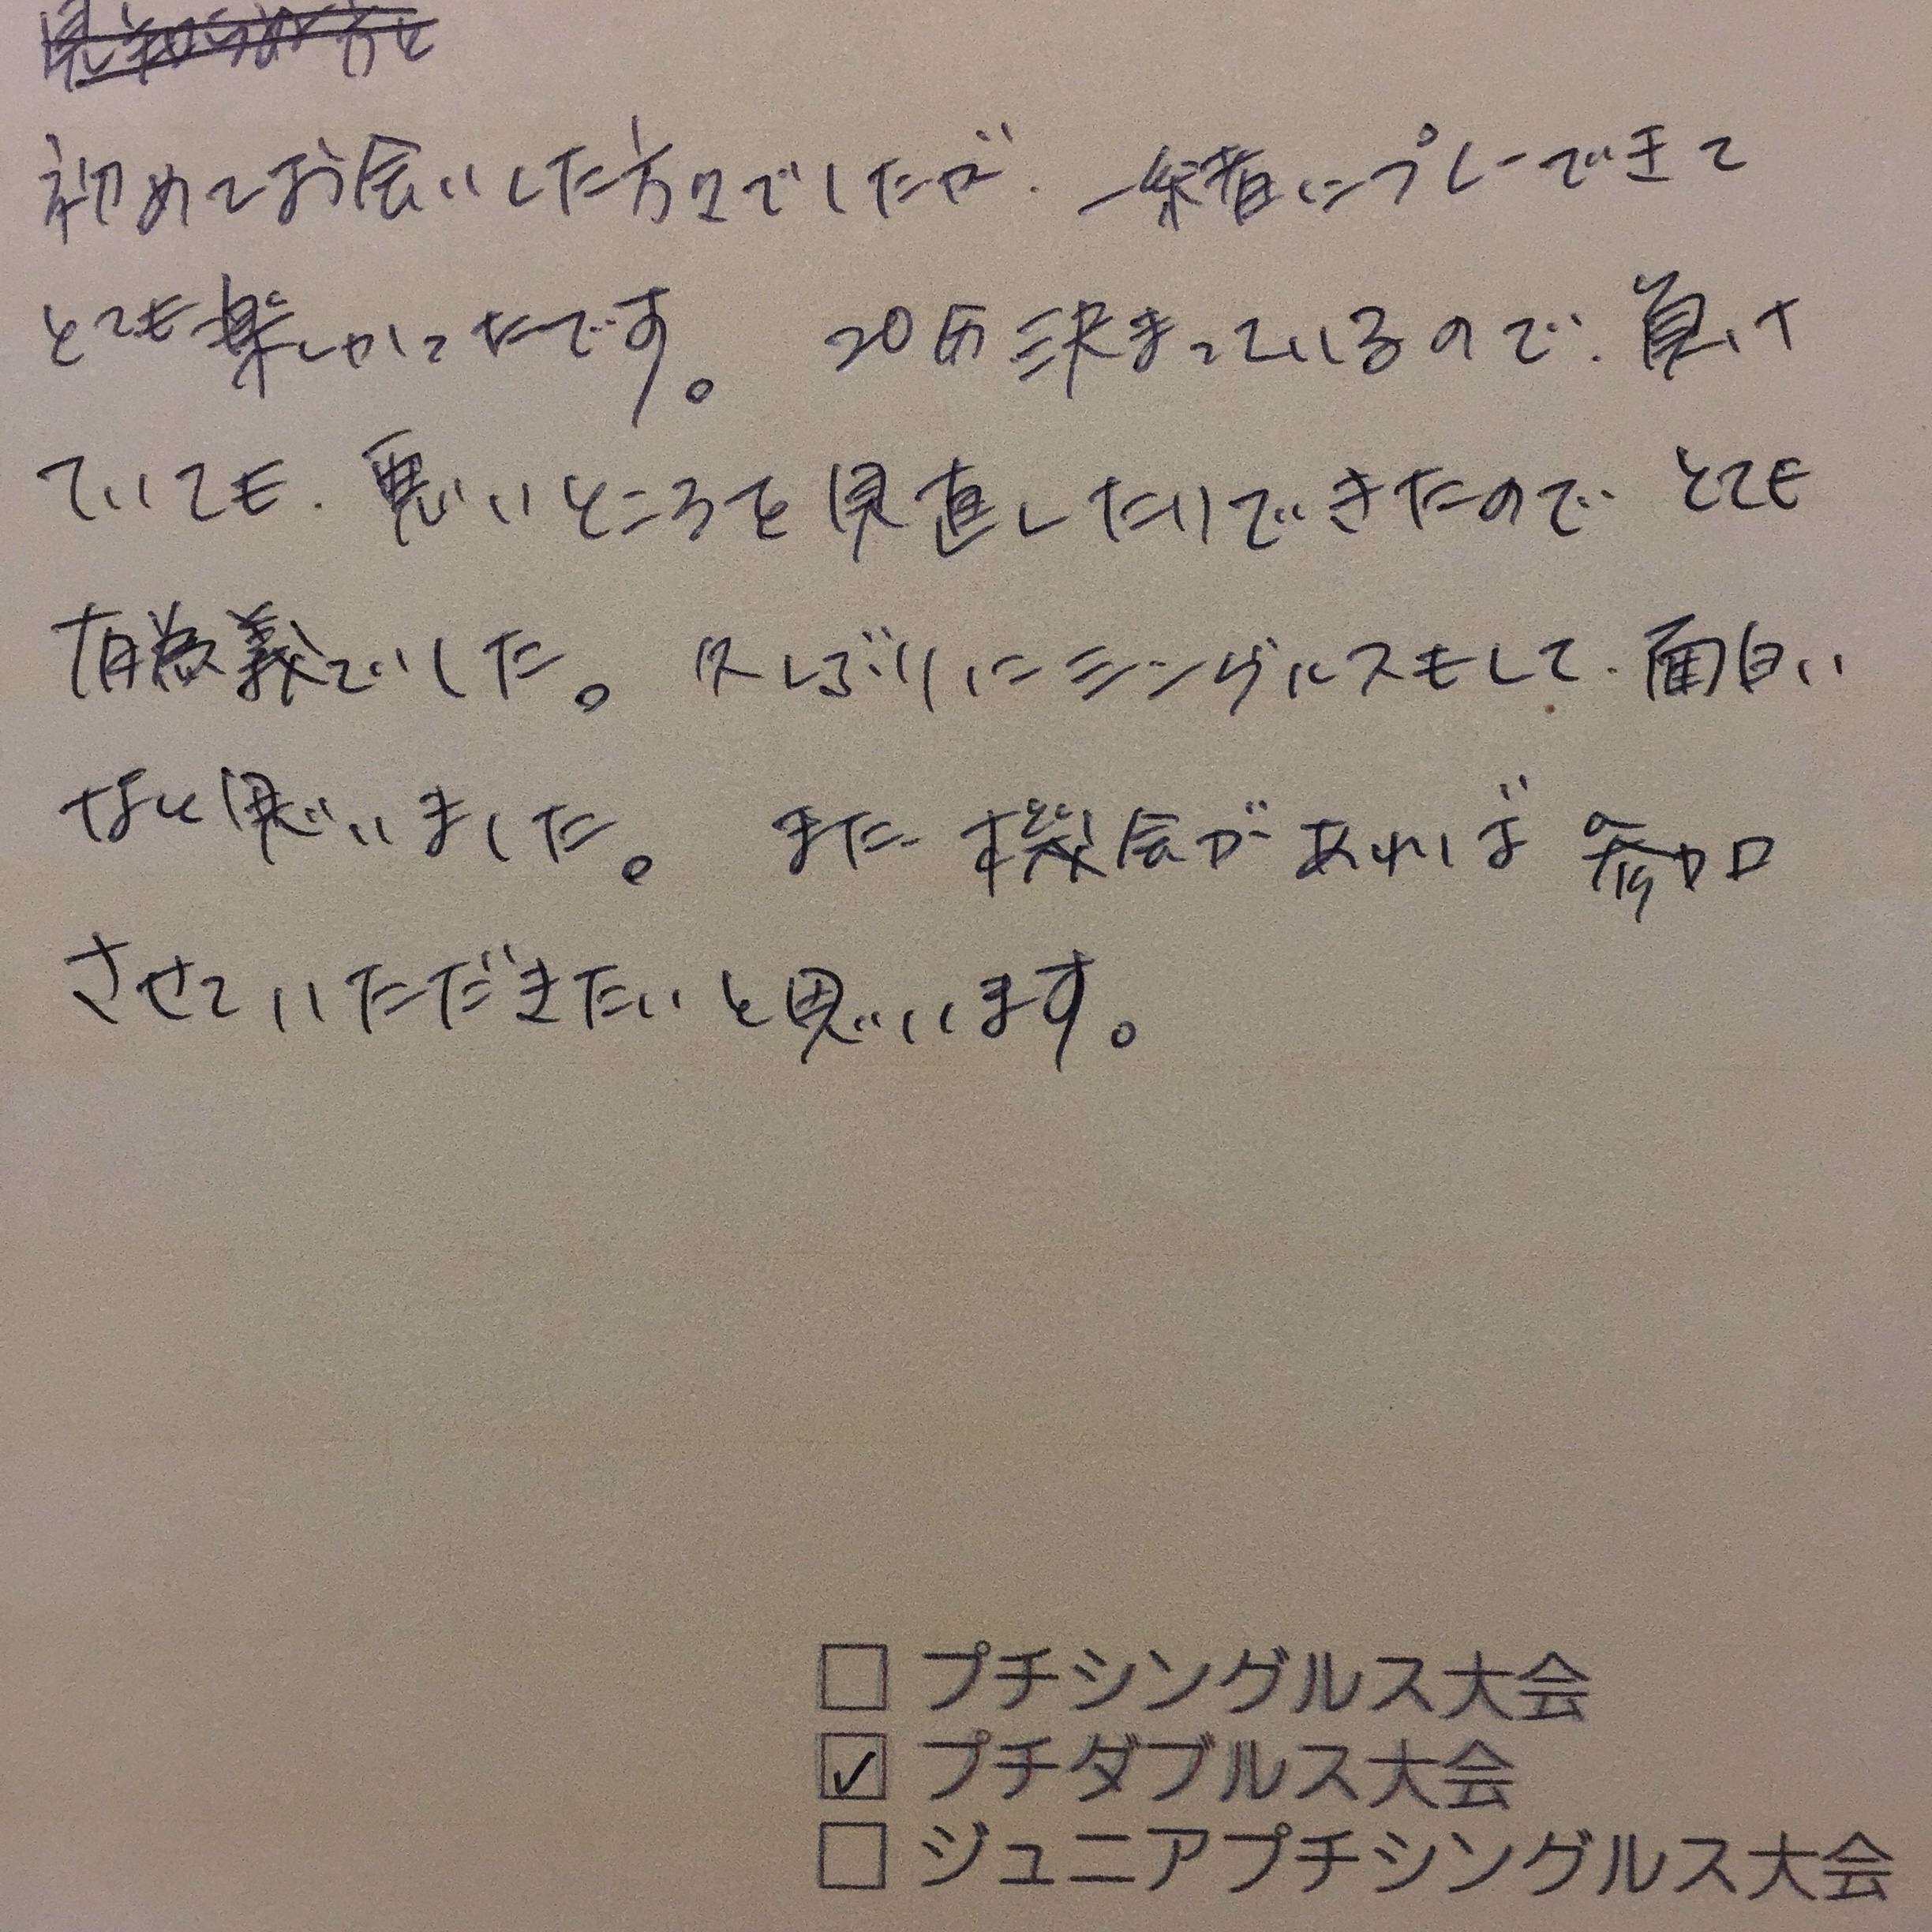 初めてお会いした方々でしたが、一緒にプレーできて
とても楽しかったです。 20分決まっているので、負け
ていても、悪いところを見直したりできたので とても
有意義でした。 久しぶりにシングルスもして、面白い
なと思いました。 また機会があれば 参加
させていただきたいと思います。
プチシングルス大会
プチダブルス大会
ジュニアプチシングルス大会